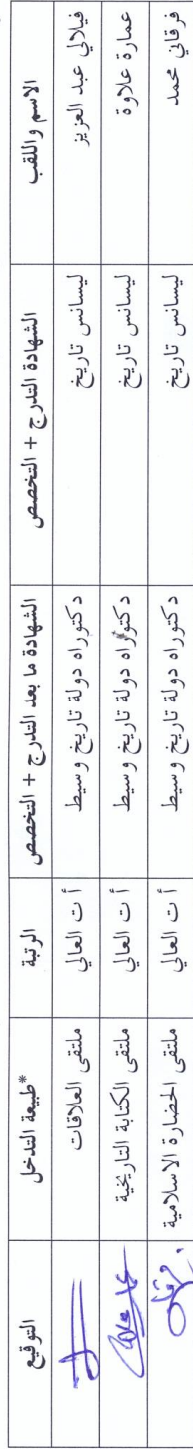 الاسم واللقب | الشهادة التدرج + التخصص | الشهادة ما بعد التدرج + التخصص | الرتبة | *طبيعة التدخل | التوقيع
فيلالي عبد العزيز | ليسانس تاريخ | دكتوراه دولة تاريخ وسيط | أ ت العالي | ملتقى العلاقات
عمارة علاوة | ليسانس تاريخ | دكتوراه دولة تاريخ وسيط | أ ت العالي | ملتقى الكتابة التاريخية
فرقاني محمد | ليسانس تاريخ | دكتوراه دولة تاريخ وسيط | أ ت العالي | ملتقى الحضارة الاسلامية